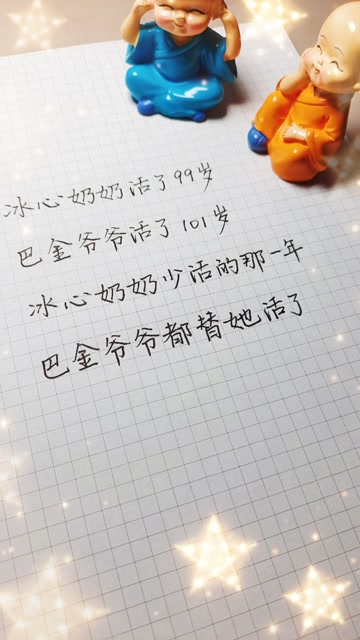 冰心奶奶活了99岁
巴金爷爷活了101岁
冰心奶奶少活的那一年
巴金爷爷都替她活了